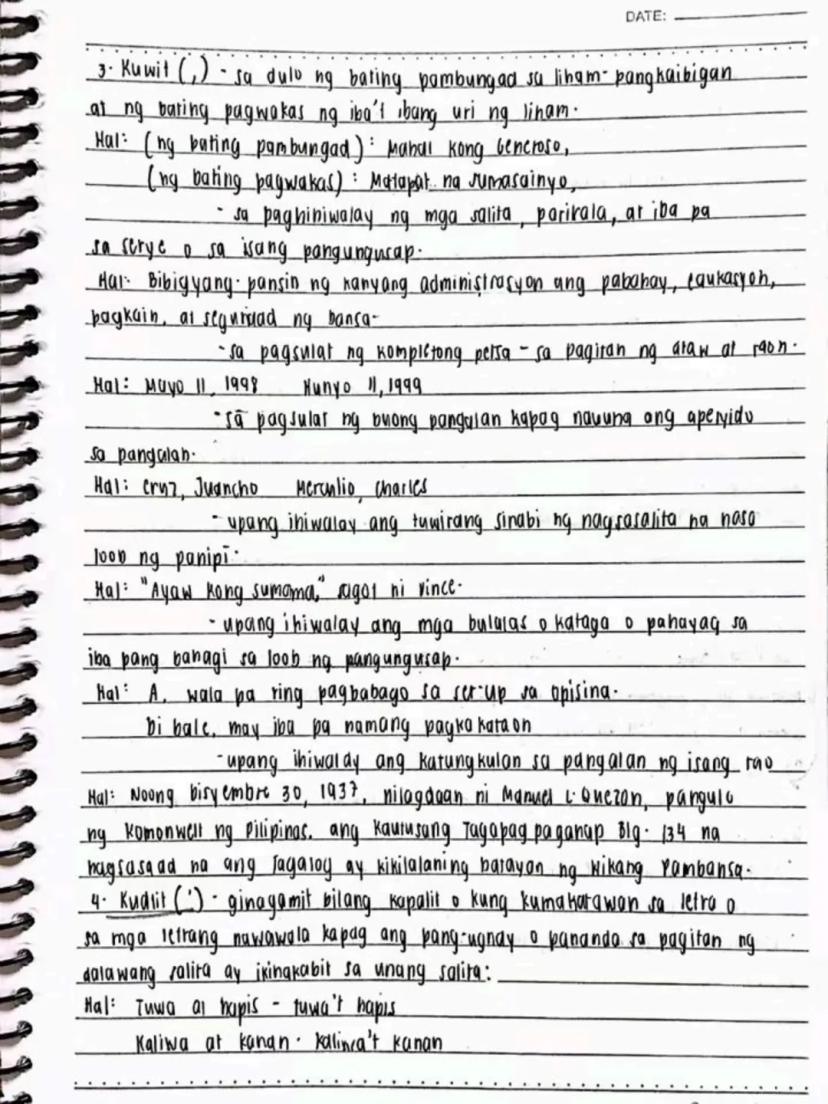 DATE:
3. Kuwit (,) - sa dulo ng bating pambungad sa liham-pangkaibigan
at ng bating pagwakas ng iba't ibang uri ng liham.
Hal: (ng bating pambungad): Mahal kong Generoso,
(ng bating pagwakas): Matapat na sumasainyo,
- sa paghihiwalay ng mga salita, parirala, at iba pa
sa serye o sa isang pangungusap.
Hal: Bibigyang-pansin ng kanyang administrasyon ang pabahay, edukasyon,
pagkain, at seguridad ng bansa.
- sa pagsulat ng kompletong petsa - sa pagitan ng araw at taon.
Hal: Mayo 11, 1998 Hunyo 11, 1999
- sa pagsulat ng buong pangalan kapag nauuna ang apelyido
sa pangalan.
Hal: Cruz, Juancho Mercurio, Charles
- upang ihiwalay ang tuwirang sinabi ng nagsasalita na nasa
loob ng panipi.
Hal: "Ayaw kong sumama," sagot ni Vince.
- upang ihiwalay ang mga bulalas o kataga o pahayag sa
iba pang bahagi sa loob ng pangungusap.
Hal: A, wala pa ring pagbabago sa set-up sa opisina.
Di bale, may iba pa namang pagkakataon
- upang ihiwalay ang katungkulan sa pangalan ng isang tao
Hal: Noong Disyembre 30, 1937, nilagdaan ni Manuel L. Quezon, pangulo
ng Komonwelt ng Pilipinas, ang Kautusang Tagapagpaganap Blg. 134 na
nagsasaad na ang Tagalog ay kikilalaning batayan ng Wikang Pambansa.
4. Kudlit (') - ginagamit bilang kapalit o kung kumakatawan sa letra o
sa mga letrang nawawala kapag ang pang-ugnay o pananda sa pagitan ng
dalawang salita ay ikinakabit sa unang salita:
Hal: Tuwa at hapis - tuwa't hapis
Kaliwa at kanan - kaliwa't kanan